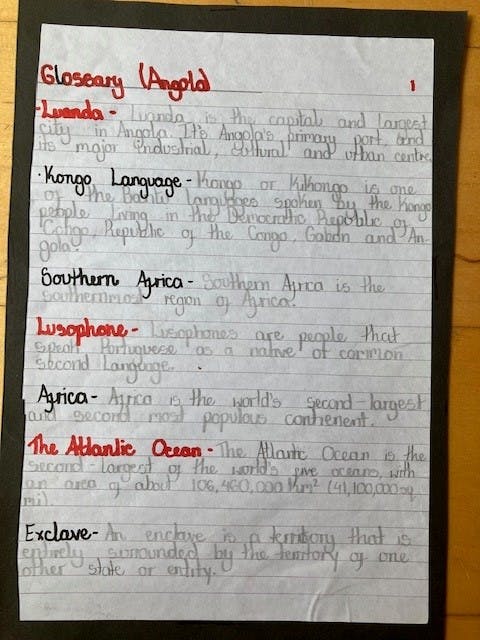 Glossary (Angola)
1
·Luanda - Luanda is the capital and largest
city in Angola. It's Angola's primary port, and
its major industrial, cultural and urban centre.
·Kongo Language - Kongo or Kikongo is one
of the Bantu languages spoken by the Kongo
people living in the Democratic Republic of
Congo, Republic of the Congo, Gabon and An-
gola.
Southern Africa - Southern Africa is the
southernmost region of Africa.
Lusophone - Lusophones are people that
speak Portuguese as a native of common
second language.
Africa - Africa is the world's second-largest
and second most populous continent.
The Atlantic Ocean - The Atlantic Ocean is the
second-largest of the world's five oceans, with
an area of about 106,460,000 km² (41,100,000 sq
mi).
Exclave - An enclave is a territory that is
entirely surrounded by the territory of one
other state or entity.